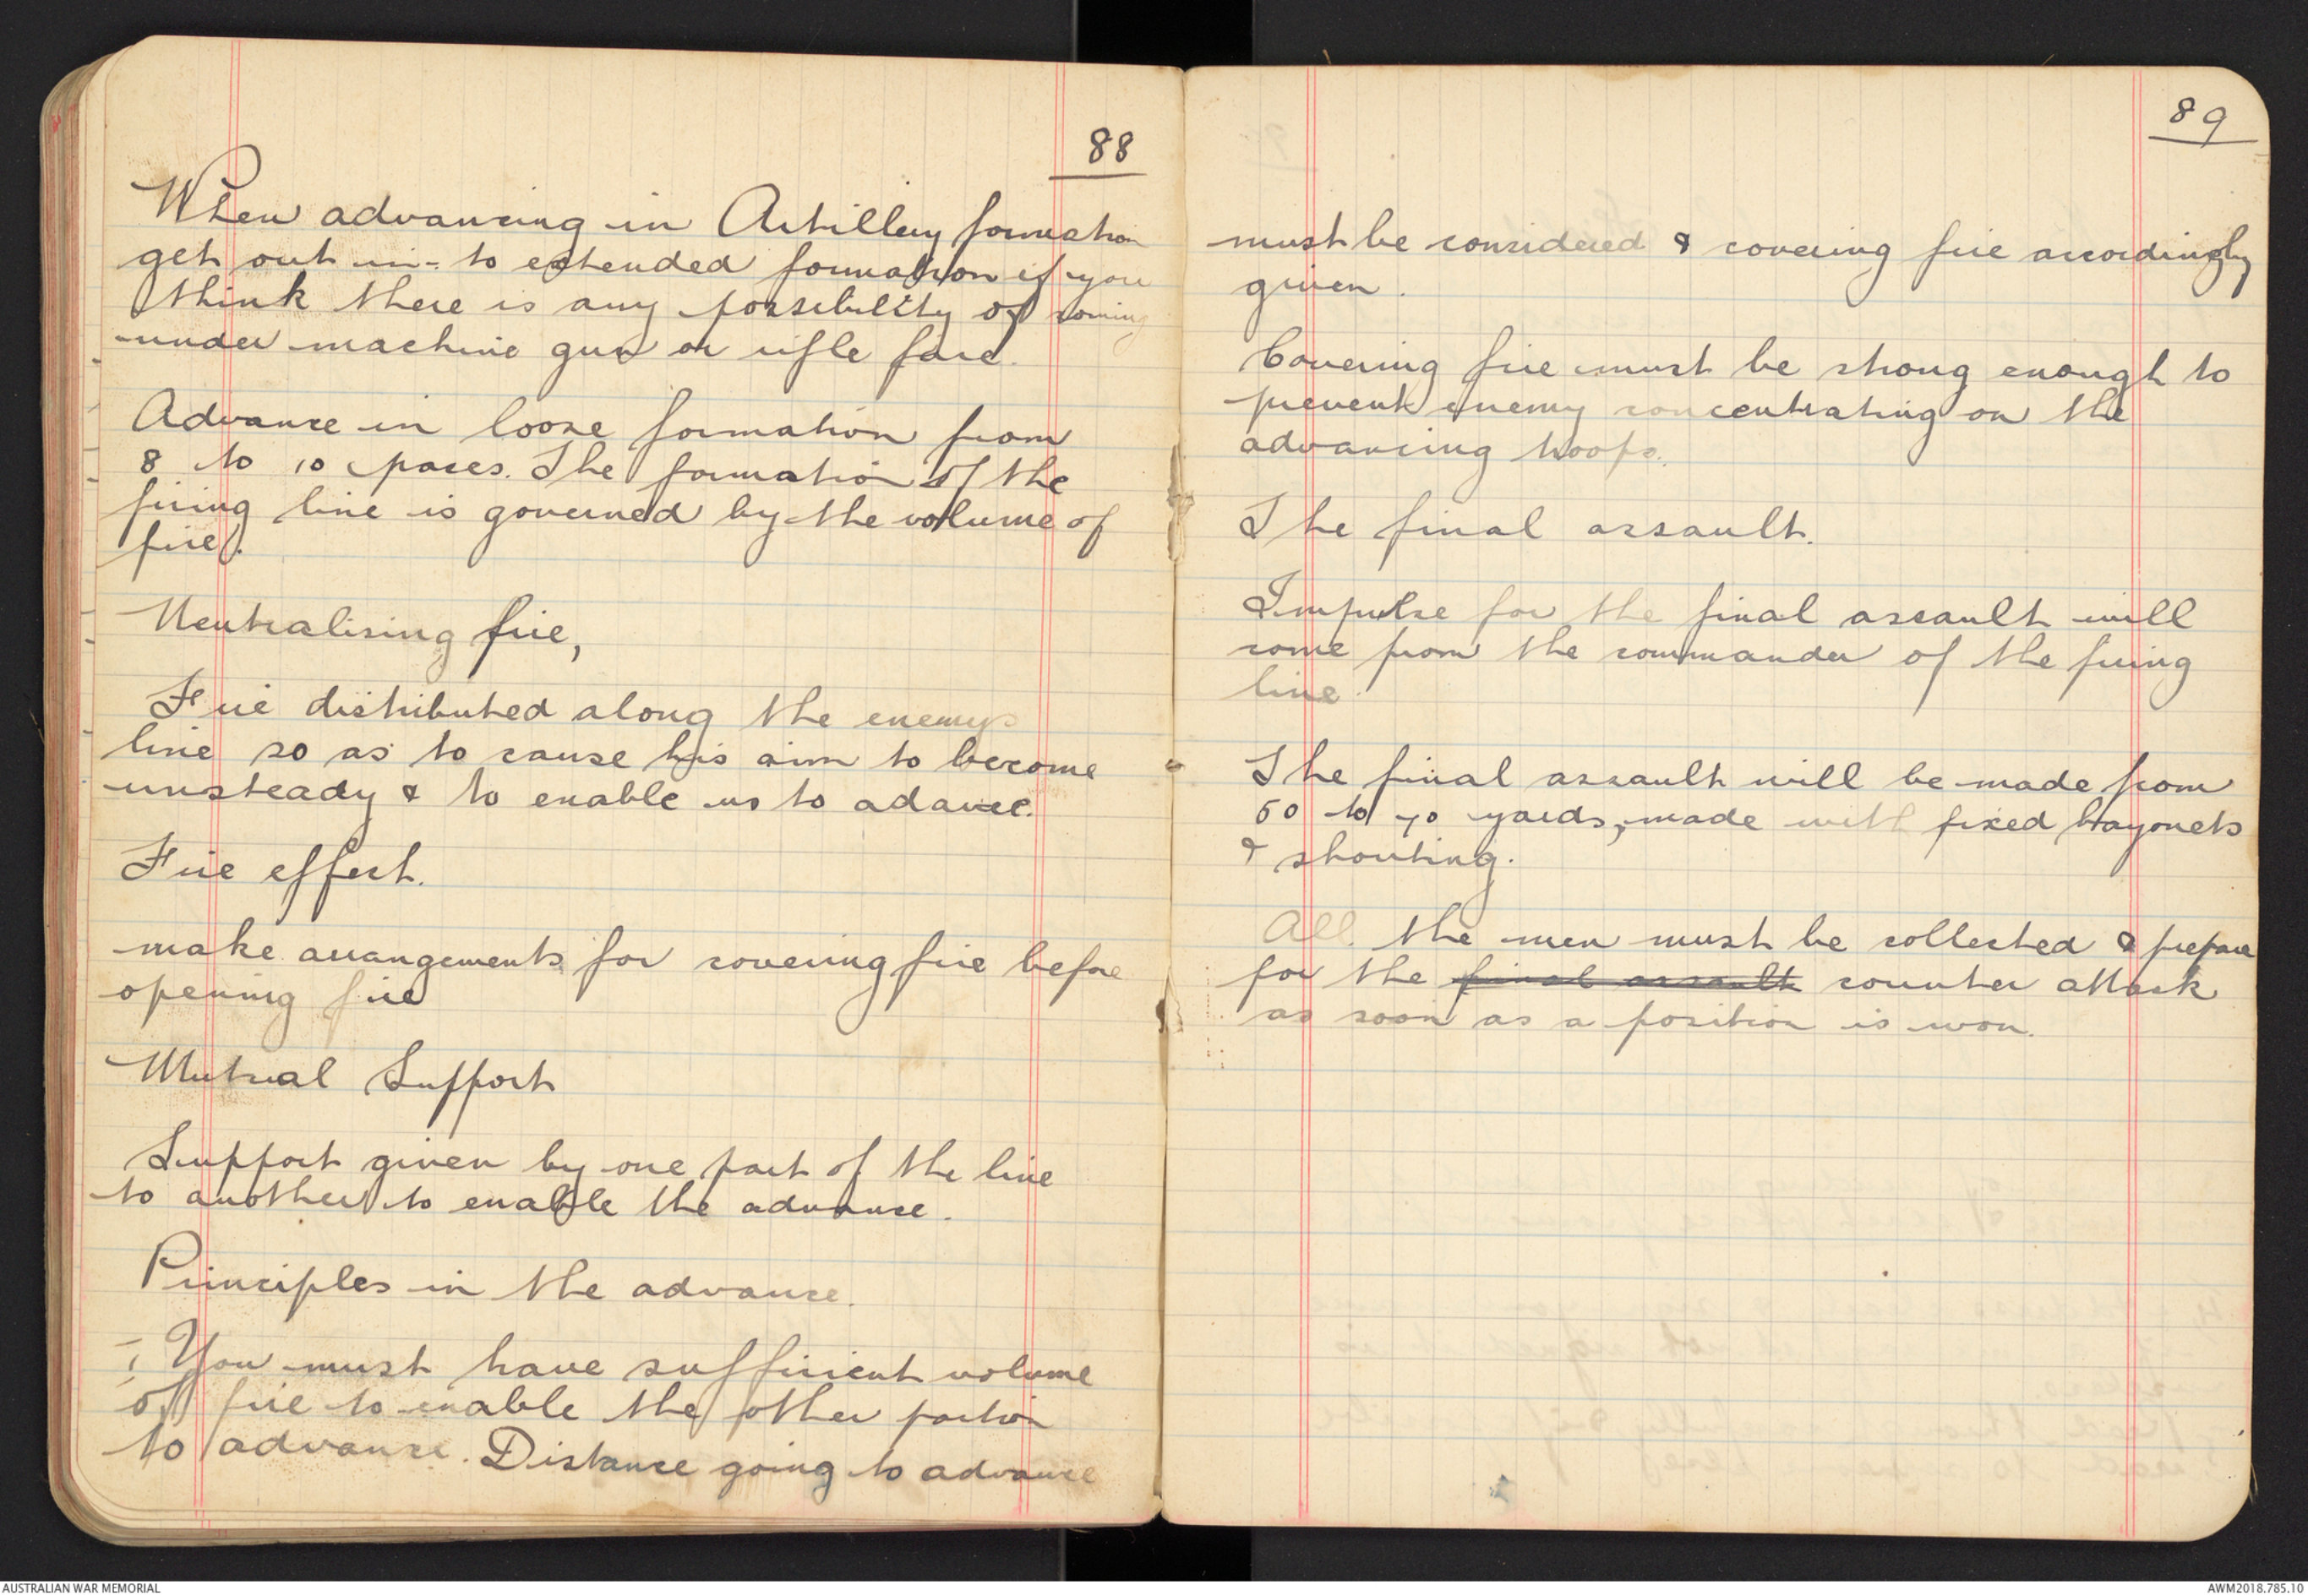 88
When advancing in Artillery formation
get out in - to extended formation if you
think there is any possibility of coming
under machine gun or rifle fire.
Advance in loose formation from
8 to 10 paces. The formation of the
firing line is governed by the volume of
fire.
Neutralising fire,
Fire distributed along the enemys
line so as to cause his aim to become
unsteady & to enable us to adavce.
Fire effect.
make arrangements for covering fire before
opening fire
Mutual Support
Support given by one part of the line
to another to enable the advance.
Principles in the advance.
1, You must have sufficient volume
of fire to enable the other portion
to advance. Distance going to advance
89
must be considered & covering fire accordingly
given.
Covering fire must be strong enough to
prevent enemy concentrating on the
advancing troops.
The final assault.
Impulse for the final assault will
come from the commander of the firing
line.
The final assault will be made from
50 to 70 yards, made with fixed bayonets
& shouting.
All the men must be collected & prepare
for the final assault counter attack
as soon as a position is won.
AUSTRALIAN WAR MEMORIAL
AWM2018.785.10